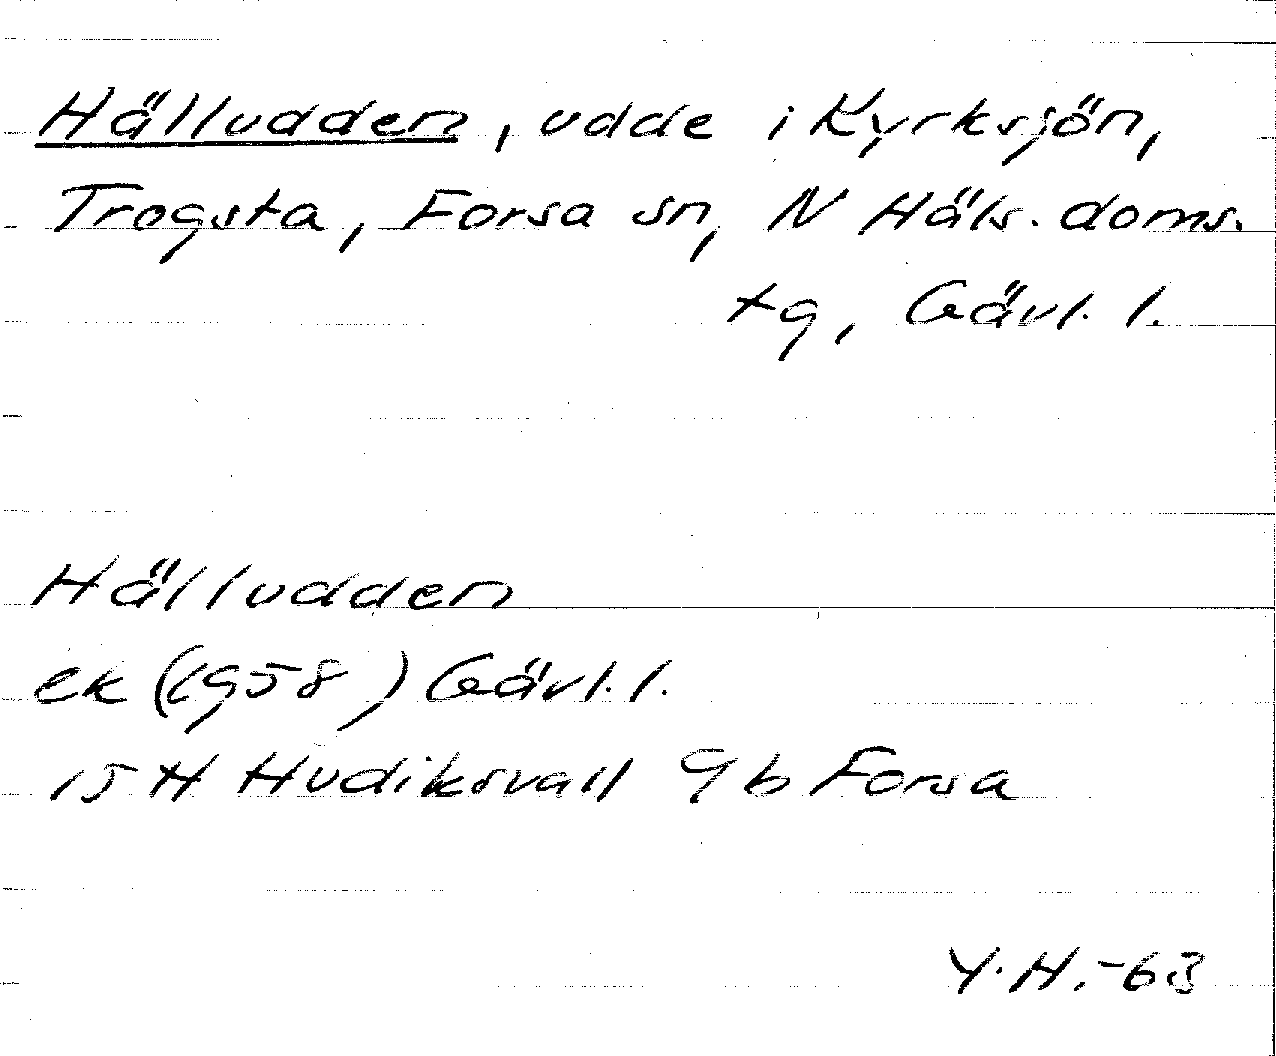 Hälludden, udde i Kyrksjön,
Trogsta, Forsa sn, N Häls. doms.
tg, Gävl. l.
Hälludden
ek (1958) Gävl. l.
15 H Hudiksvall 9 b Forsa
Y. H. -63